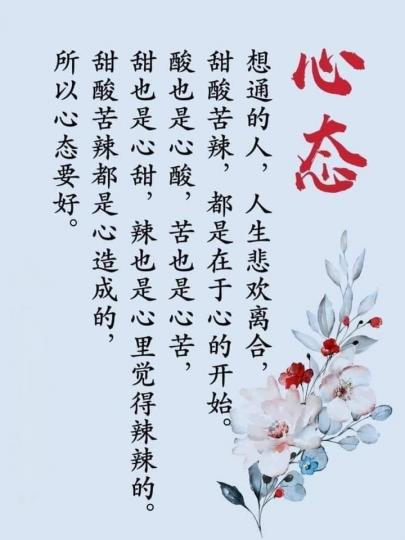 心态
想通的人，人生悲欢离合，
甜酸苦辣，都是在于心的开始。
酸也是心酸，苦也是心苦，
甜也是心甜，辣也是心里觉得辣辣的。
甜酸苦辣都是心造成的，
所以心态要好。